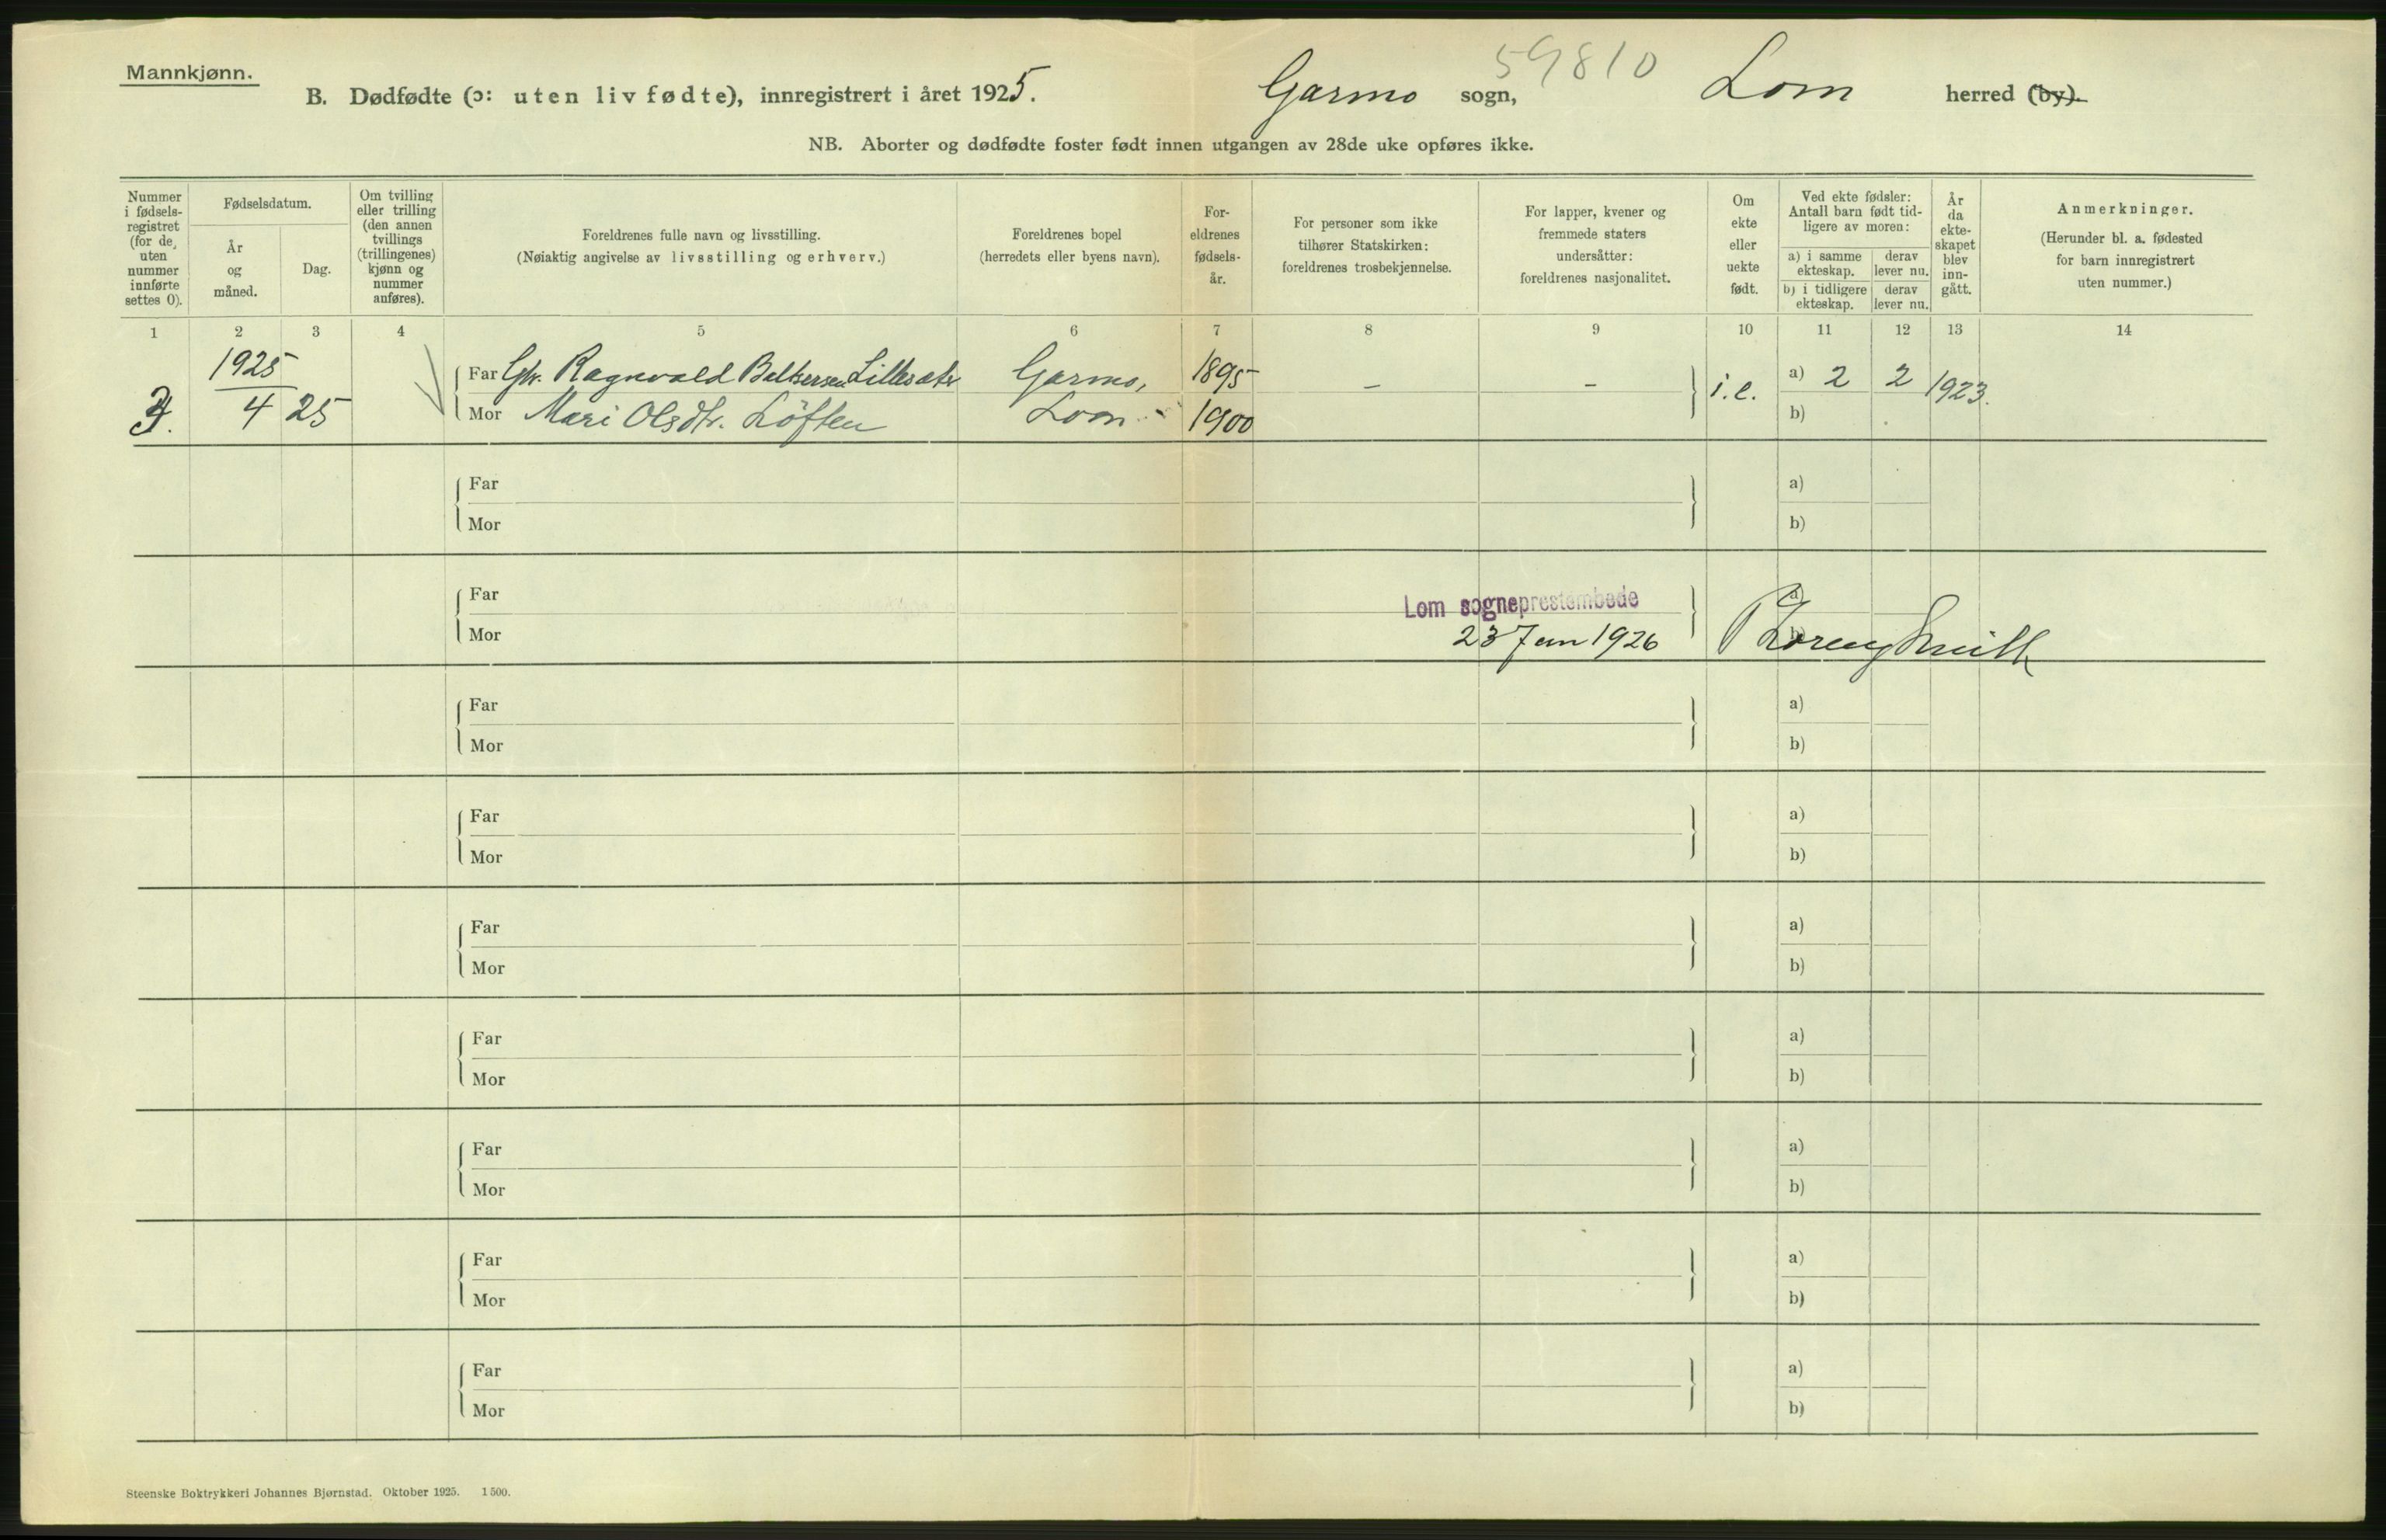 Mannkjønn.
59810
B. Dødfødte (ɔ: uten liv fødte), innregistrert i året 1925. Garmo sogn, Lom herred (by).
NB. Aborter og dødfødte foster født innen utgangen av 28de uke opføres ikke.
Nummer
i fødsels-
registret
(for de
uten
nummer
innførte
settes 0).
Fødselsdatum.
År
og
måned.
Dag.
Om tvilling
eller trilling
(den annen
tvillings
(trillingenes)
kjønn og
nummer
anføres).
Foreldrenes fulle navn og livsstilling.
(Nøiaktig angivelse av livsstilling og erhverv.)
Foreldrenes bopel
(herredets eller byens navn).
For-
eldrenes
fødsels-
år.
For personer som ikke
tilhører Statskirken:
foreldrenes trosbekjennelse.
For lapper, kvener og
fremmede staters
undersåtter:
foreldrenes nasjonalitet.
Om
ekte
eller
uekte
født.
Ved ekte fødsler:
Antall barn født tid-
ligere av moren:
a) i samme
ekteskap.
derav
lever nu.
b) i tidligere
ekteskap.
derav
lever nu.
År
da
ekte-
skapet
blev
inn-
gått.
Anmerkninger.
(Herunder bl. a. fødested
for barn innregistrert
uten nummer.)
1 2 3 4 5 6 7 8 9 10 11 12 13 14
1925
Far Gbr. Ragnvald Baltsersen Lillesæter Garmo, 1895 – – i.e. a) 2 2 1923.
3. 4 25 Mor Mari Olsdtr. Løften Lom 1900 b)
Far a)
Mor b)
Far Lom sogneprestembede a)
Mor 23 Jan 1926 b)
Far a)
Mor b)
Far a)
Mor b)
Far a)
Mor b)
Far a)
Mor b)
Far a)
Mor b)
Far a)
Mor b)
Far a)
Mor b)
Steenske Boktrykkeri Johannes Bjørnstad. Oktober 1925. 1500.